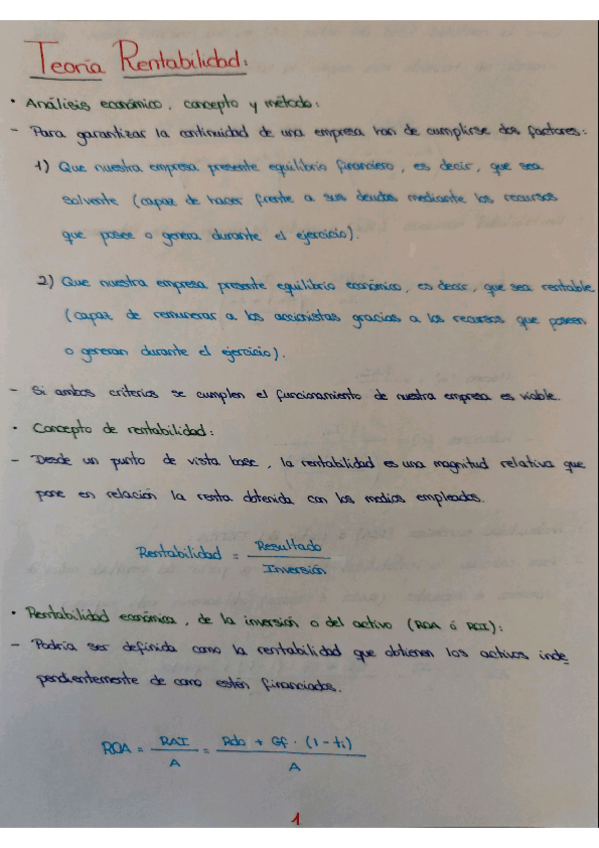 Teoría Rentabilidad:
• Análisis económico, concepto y método:
- Para garantizar la continuidad de una empresa han de cumplirse dos factores:
1) Que nuestra empresa presente equilibrio financiero, es decir, que sea
solvente (capaz de hacer frente a sus deudas mediante los recursos
que posee o genera durante el ejercicio).
2) Que nuestra empresa presente equilibrio económico, es decir, que sea rentable
(capaz de remunerar a los accionistas gracias a los recursos que poseen
o generan durante el ejercicio).
- Si ambos criterios se cumplen el funcionamiento de nuestra empresa es viable.
• Concepto de rentabilidad:
- Desde un punto de vista base, la rentabilidad es una magnitud relativa que
pone en relación la renta obtenida con los medios empleados.
Rentabilidad = Resultado / Inversión
• Rentabilidad económica, de la inversión o del activo (ROA ó REI):
- Podría ser definida como la rentabilidad que obtienen los activos inde
pendientemente de como estén financiados.
ROA = RAI / A = Rdo + Gf · (1 - ti) / A
1